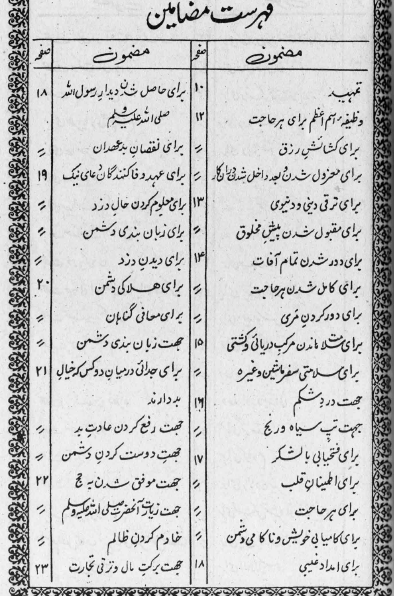 فہرست مضامین
مضمون صفحہ
تمہید ۱۰
وظیفہ اسم اعظم برای ہر حاجت ۱۲
برای کشائش رزق 〃
برای معزول شدن و بعد داخل شدن در ان کار 〃
برای ترقی دینی و دنیوی ۱۳
برای مقبول شدن پیش مخلوق 〃
برای دور شدن تمام آفات ۱۴
برای کامل شدن ہر حاجت 〃
برای دور کردن 〃
برای سلامت ماندن مرکب دریائی و کشتی ۱۵
برای سلامتی سفر ماشین وغیرہ 〃
جہت درد شکم ۱۶
جہت تپ سیاہ و رنج 〃
برای فتحیابی با لشکر ۱۷
برای اطمینان قلب 〃
برای ہر حاجت 〃
برای کامیابی خویش و ناکامی دشمن 〃
برای امداد غیبی ۱۸
مضمون صفحہ
برای حاصل شدن دیدار رسول اللہ ۱۸
صلی اللہ علیہ وسلم
برای نقصان بدعہدان 〃
برای عہد و فاکنندگان دعای نیک ۱۹
برای معلوم کردن حال دزد 〃
برای زبان بندی دشمن 〃
برای دیدن دزد 〃
برای ہلاکی دشمن ۲۰
برای معافی گناہان 〃
جہت زبان بندی دشمن 〃
برای جدائی درمیان دو کس کہ خیال ۲۱
بد دارند
جہت رفع کردن عادت بد 〃
جہت دوست کردن دشمن 〃
جہت موفق شدن بہ حج ۲۲
جہت زیارت آنحضرت صلی اللہ علیہ وسلم 〃
خادم کردن ظالم 〃
جہت برکت مال و ترقی تجارت ۲۳